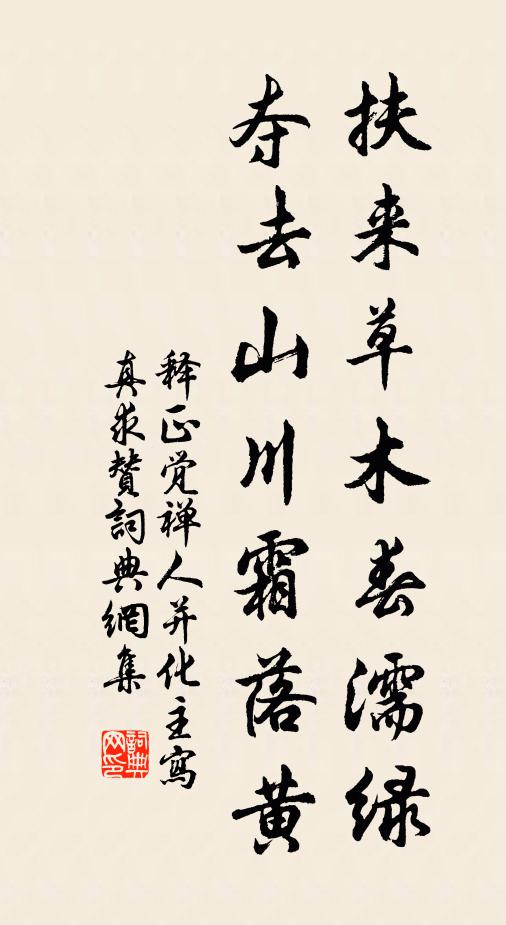 扶来草木春濡绿
夺去山川霜落黄
释正觉禅人并化主寫
真求赞詞典網集
詞典网印